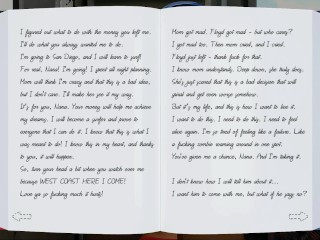 I figured out what to do with the money you left me.
I'll do what you always wanted me to do.
I'm going to San Diego, and I will learn to surf!
For real, Nana! I'm going! I spent all night planning.
Mom will think I'm crazy and that this is a bad idea,
but I don't care. I'll make her see it my way.
It's for you, Nana. Your money will help me achieve
my dreams. I will become a surfer and prove to
everyone that I can do it. I know that this is what I
was meant to do! I know this in my heart, and thanks
to you, it will happen.
So, turn your head a bit when you watch over me
because WEST COAST HERE I COME!
Love ya so fucking much it hurts!
Mom got mad. Floyd got mad - but who cares?
I got mad too. Then mom cried, and I cried.
Floyd just left - thank fuck for that.
I know mom understands. Deep down, she truly does.
She's just worried that this is a bad decision that will
spiral and get even worse somehow.
But it's my life, and this is how I want to live it.
I want to do this. I need to do this. I need to feel
alive again. I'm so tired of feeling like a failure. Like
a fucking zombie running around in one spot.
You've given me a chance, Nana. And I'm taking it.
I don't know how I will tell him about it...
I want him to come with me, but what if he says no?